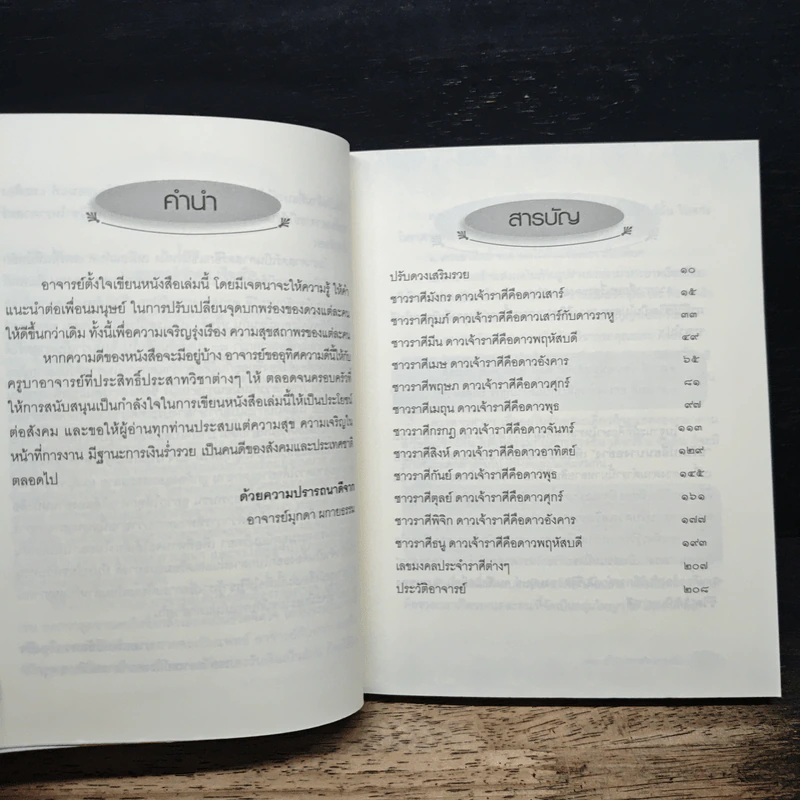 คำนำ
อาจารย์ตั้งใจเขียนหนังสือเล่มนี้ โดยมีเจตนาจะให้ความรู้ ให้คำ
แนะนำต่อเพื่อนมนุษย์ ในการปรับเปลี่ยนจุดบกพร่องของดวงแต่ละคน
ให้ดีขึ้นกว่าเดิม ทั้งนี้เพื่อความเจริญรุ่งเรือง ความสุขสถาพรของแต่ละคน
หากความดีของหนังสือจะมีอยู่บ้าง อาจารย์ขออุทิศความดีนี้ให้กับ
ครูบาอาจารย์ที่ประสิทธิ์ประสาทวิชาต่างๆ ให้ ตลอดจนครอบครัวที่
ให้การสนับสนุนเป็นกำลังใจในการเขียนหนังสือเล่มนี้ให้เป็นประโยชน์
ต่อสังคม และขอให้ผู้อ่านทุกท่านประสบแต่ความสุข ความเจริญใน
หน้าที่การงาน มีฐานะการเงินร่ำรวย เป็นคนดีของสังคมและประเทศชาติ
ตลอดไป
ด้วยความปรารถนาดีจาก
อาจารย์มุกดา ผกายธรรม
สารบัญ
ปรับดวงเสริมรวย ๑๐
ชาวราศีมังกร ดาวเจ้าราศีคือดาวเสาร์ ๑๕
ชาวราศีกุมภ์ ดาวเจ้าราศีคือดาวเสาร์กับดาวราหู ๓๓
ชาวราศีมีน ดาวเจ้าราศีคือดาวพฤหัสบดี ๔๙
ชาวราศีเมษ ดาวเจ้าราศีคือดาวอังคาร ๖๕
ชาวราศีพฤษภ ดาวเจ้าราศีคือดาวศุกร์ ๘๑
ชาวราศีเมถุน ดาวเจ้าราศีคือดาวพุธ ๙๗
ชาวราศีกรกฎ ดาวเจ้าราศีคือดาวจันทร์ ๑๑๓
ชาวราศีสิงห์ ดาวเจ้าราศีคือดาวอาทิตย์ ๑๒๙
ชาวราศีกันย์ ดาวเจ้าราศีคือดาวพุธ ๑๔๕
ชาวราศีตุลย์ ดาวเจ้าราศีคือดาวศุกร์ ๑๖๑
ชาวราศีพิจิก ดาวเจ้าราศีคือดาวอังคาร ๑๗๗
ชาวราศีธนู ดาวเจ้าราศีคือดาวพฤหัสบดี ๑๙๓
เลขมงคลประจำราศีต่างๆ ๒๐๗
ประวัติอาจารย์ ๒๐๘